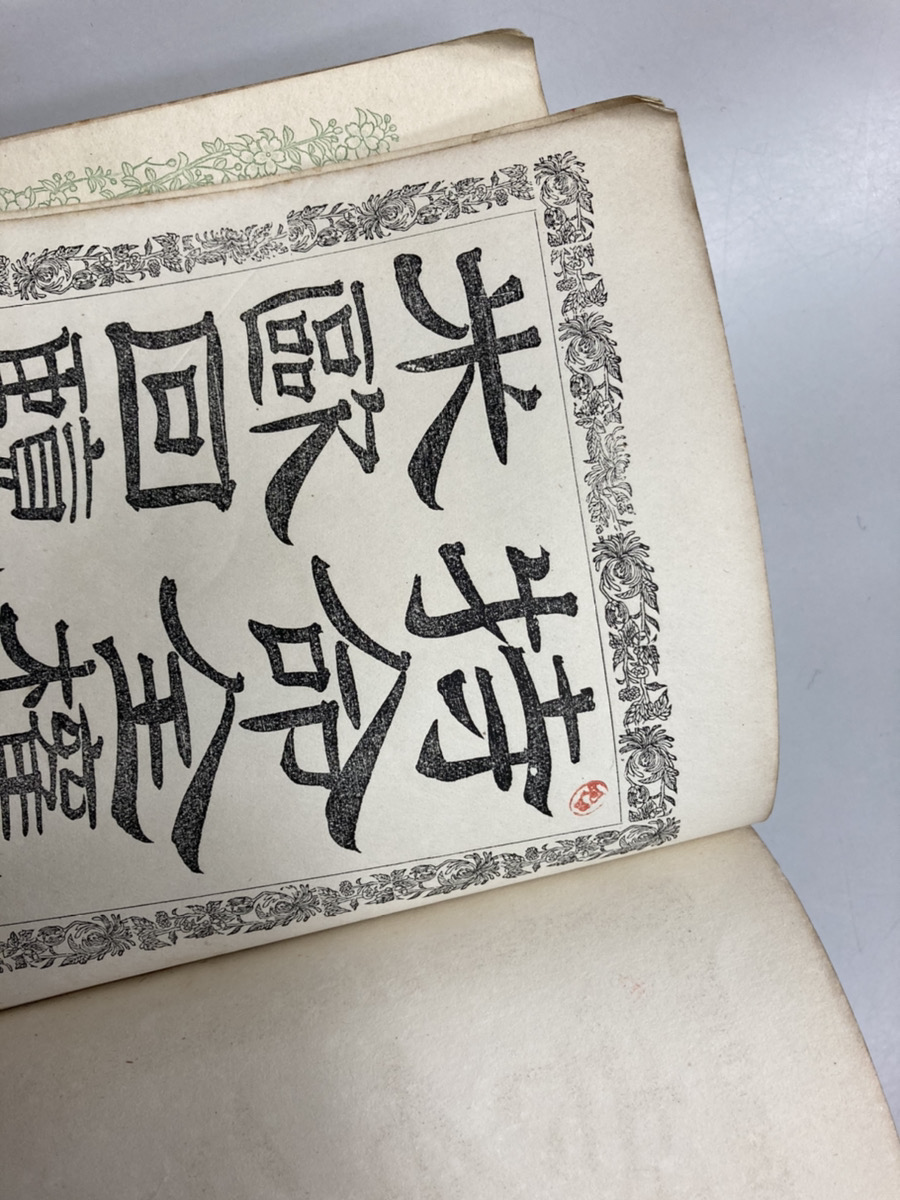 特命全權
米歐回覽